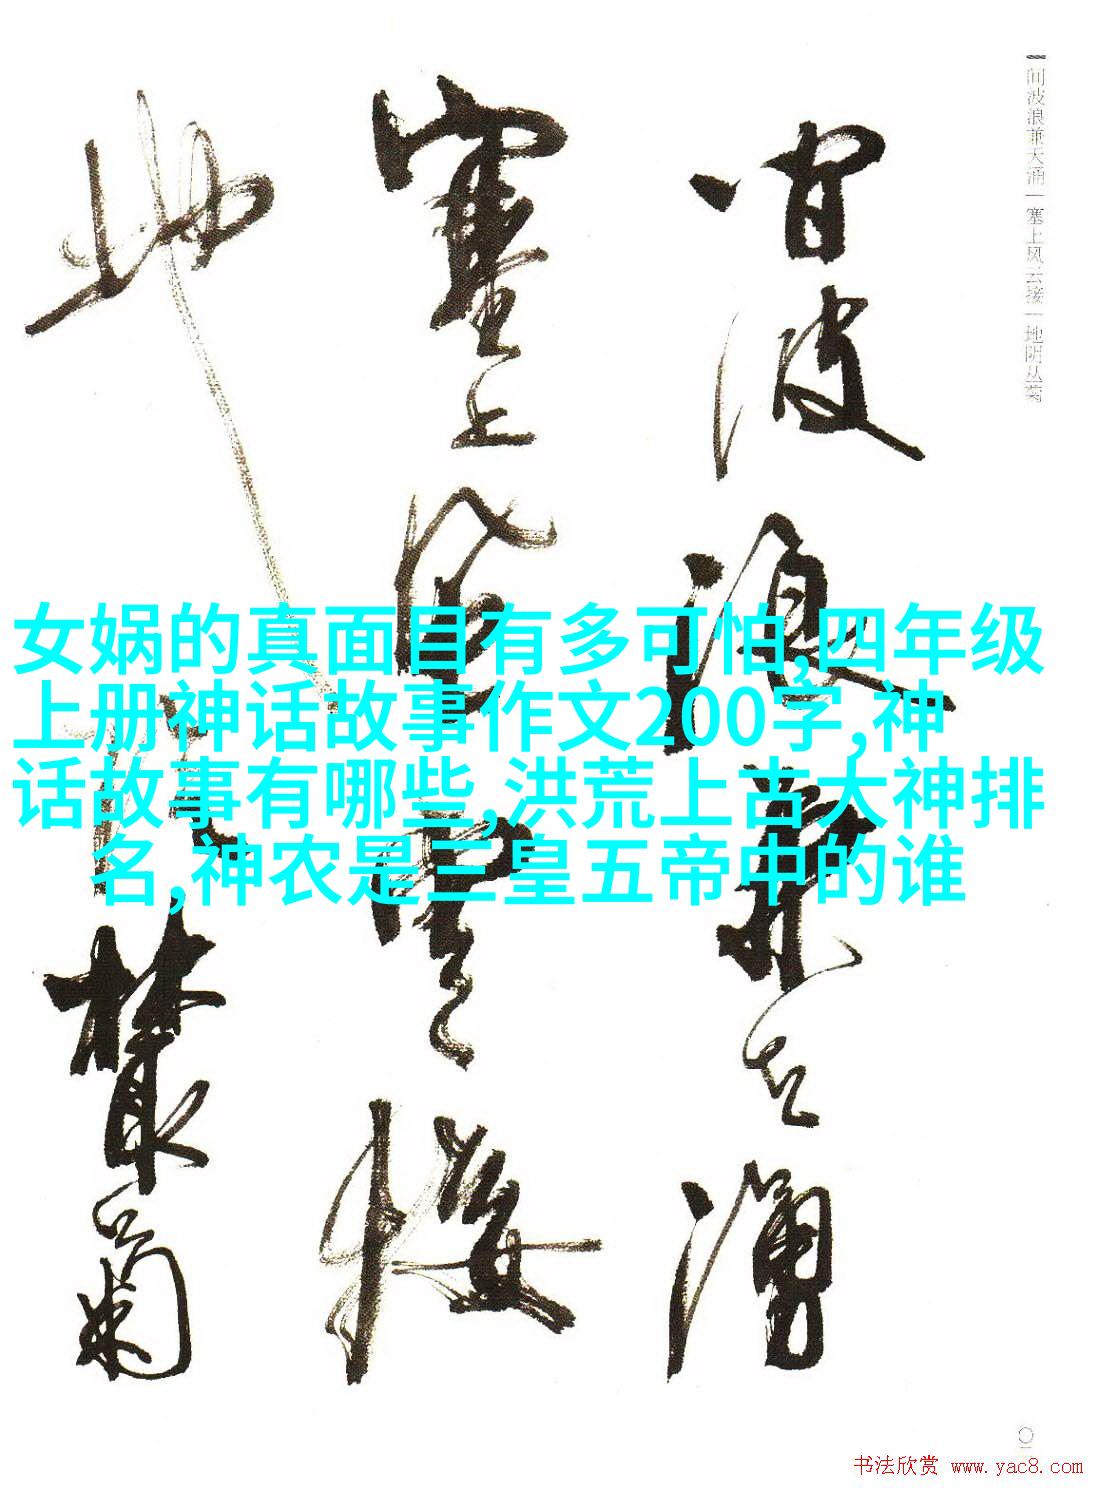 间波浪兼天涌
塞上风云接
地阴丛菊
间波浪兼天涌｜塞上风云接｜地阴丛菊
女娲的真面目有多可怕,四年级
上册神话故事作文200字,神
话故事有哪些,洪荒上古大神排
名,神农是三皇五帝中的谁
书法欣赏 www.yac8.com